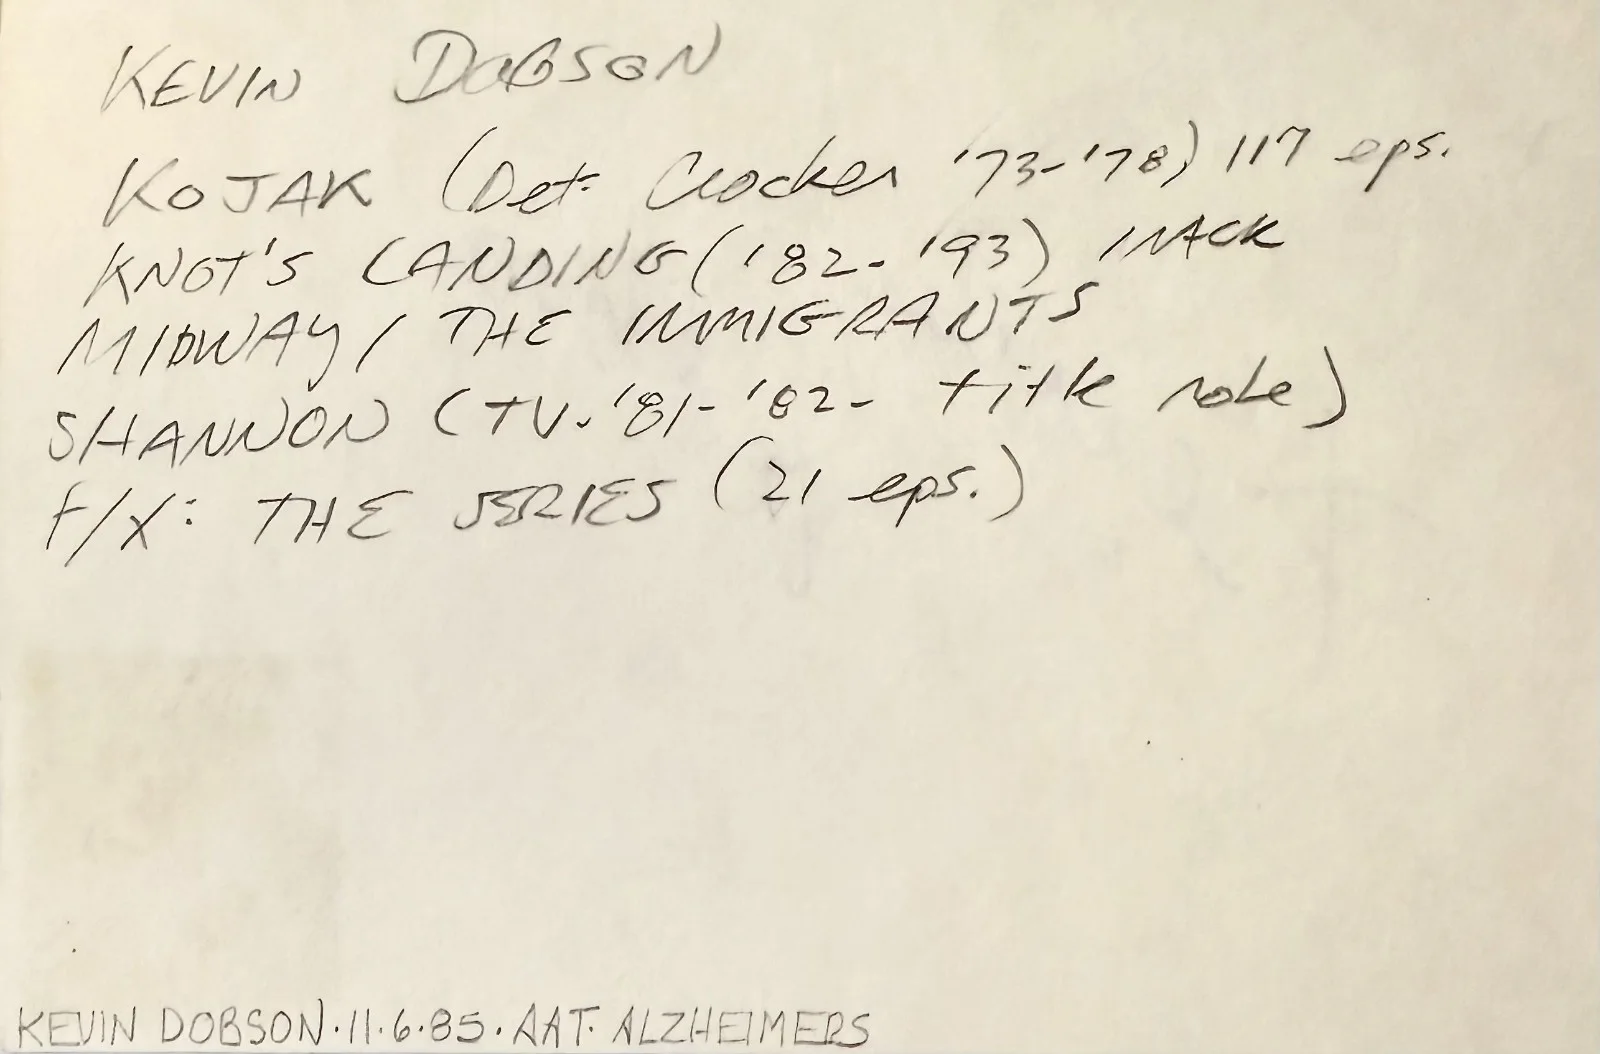 KEVIN DOBSON
KOJAK (Det. Crocker '73-'78) 117 eps.
KNOT'S LANDING ('82-'93) MACK
MIDWAY / THE IMMIGRANTS
SHANNON (TV. '81-'82- title role)
F/X: THE SERIES (21 eps.)
KEVIN DOBSON·11·6·85·AAT· ALZHEIMERS